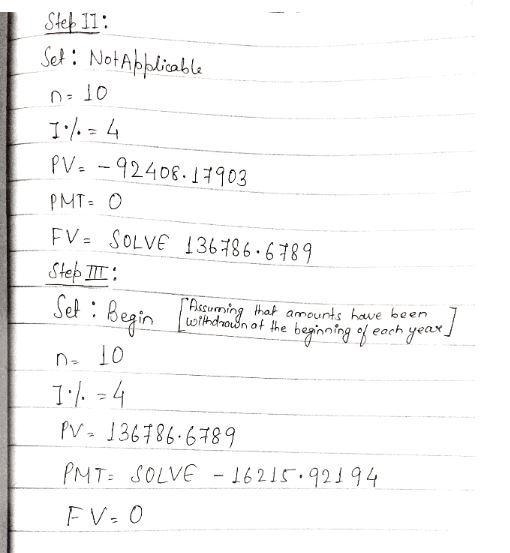 Step II:
Set: Not Applicable
n= 10
I%= 4
PV= -92408.17903
PMT= 0
FV= SOLVE 136786.6789
Step III:
Set: Begin [Assuming that amounts have been withdrawn at the beginning of each year]
n= 10
I% =4
PV= 136786.6789
PMT= SOLVE -16215.92194
FV=0